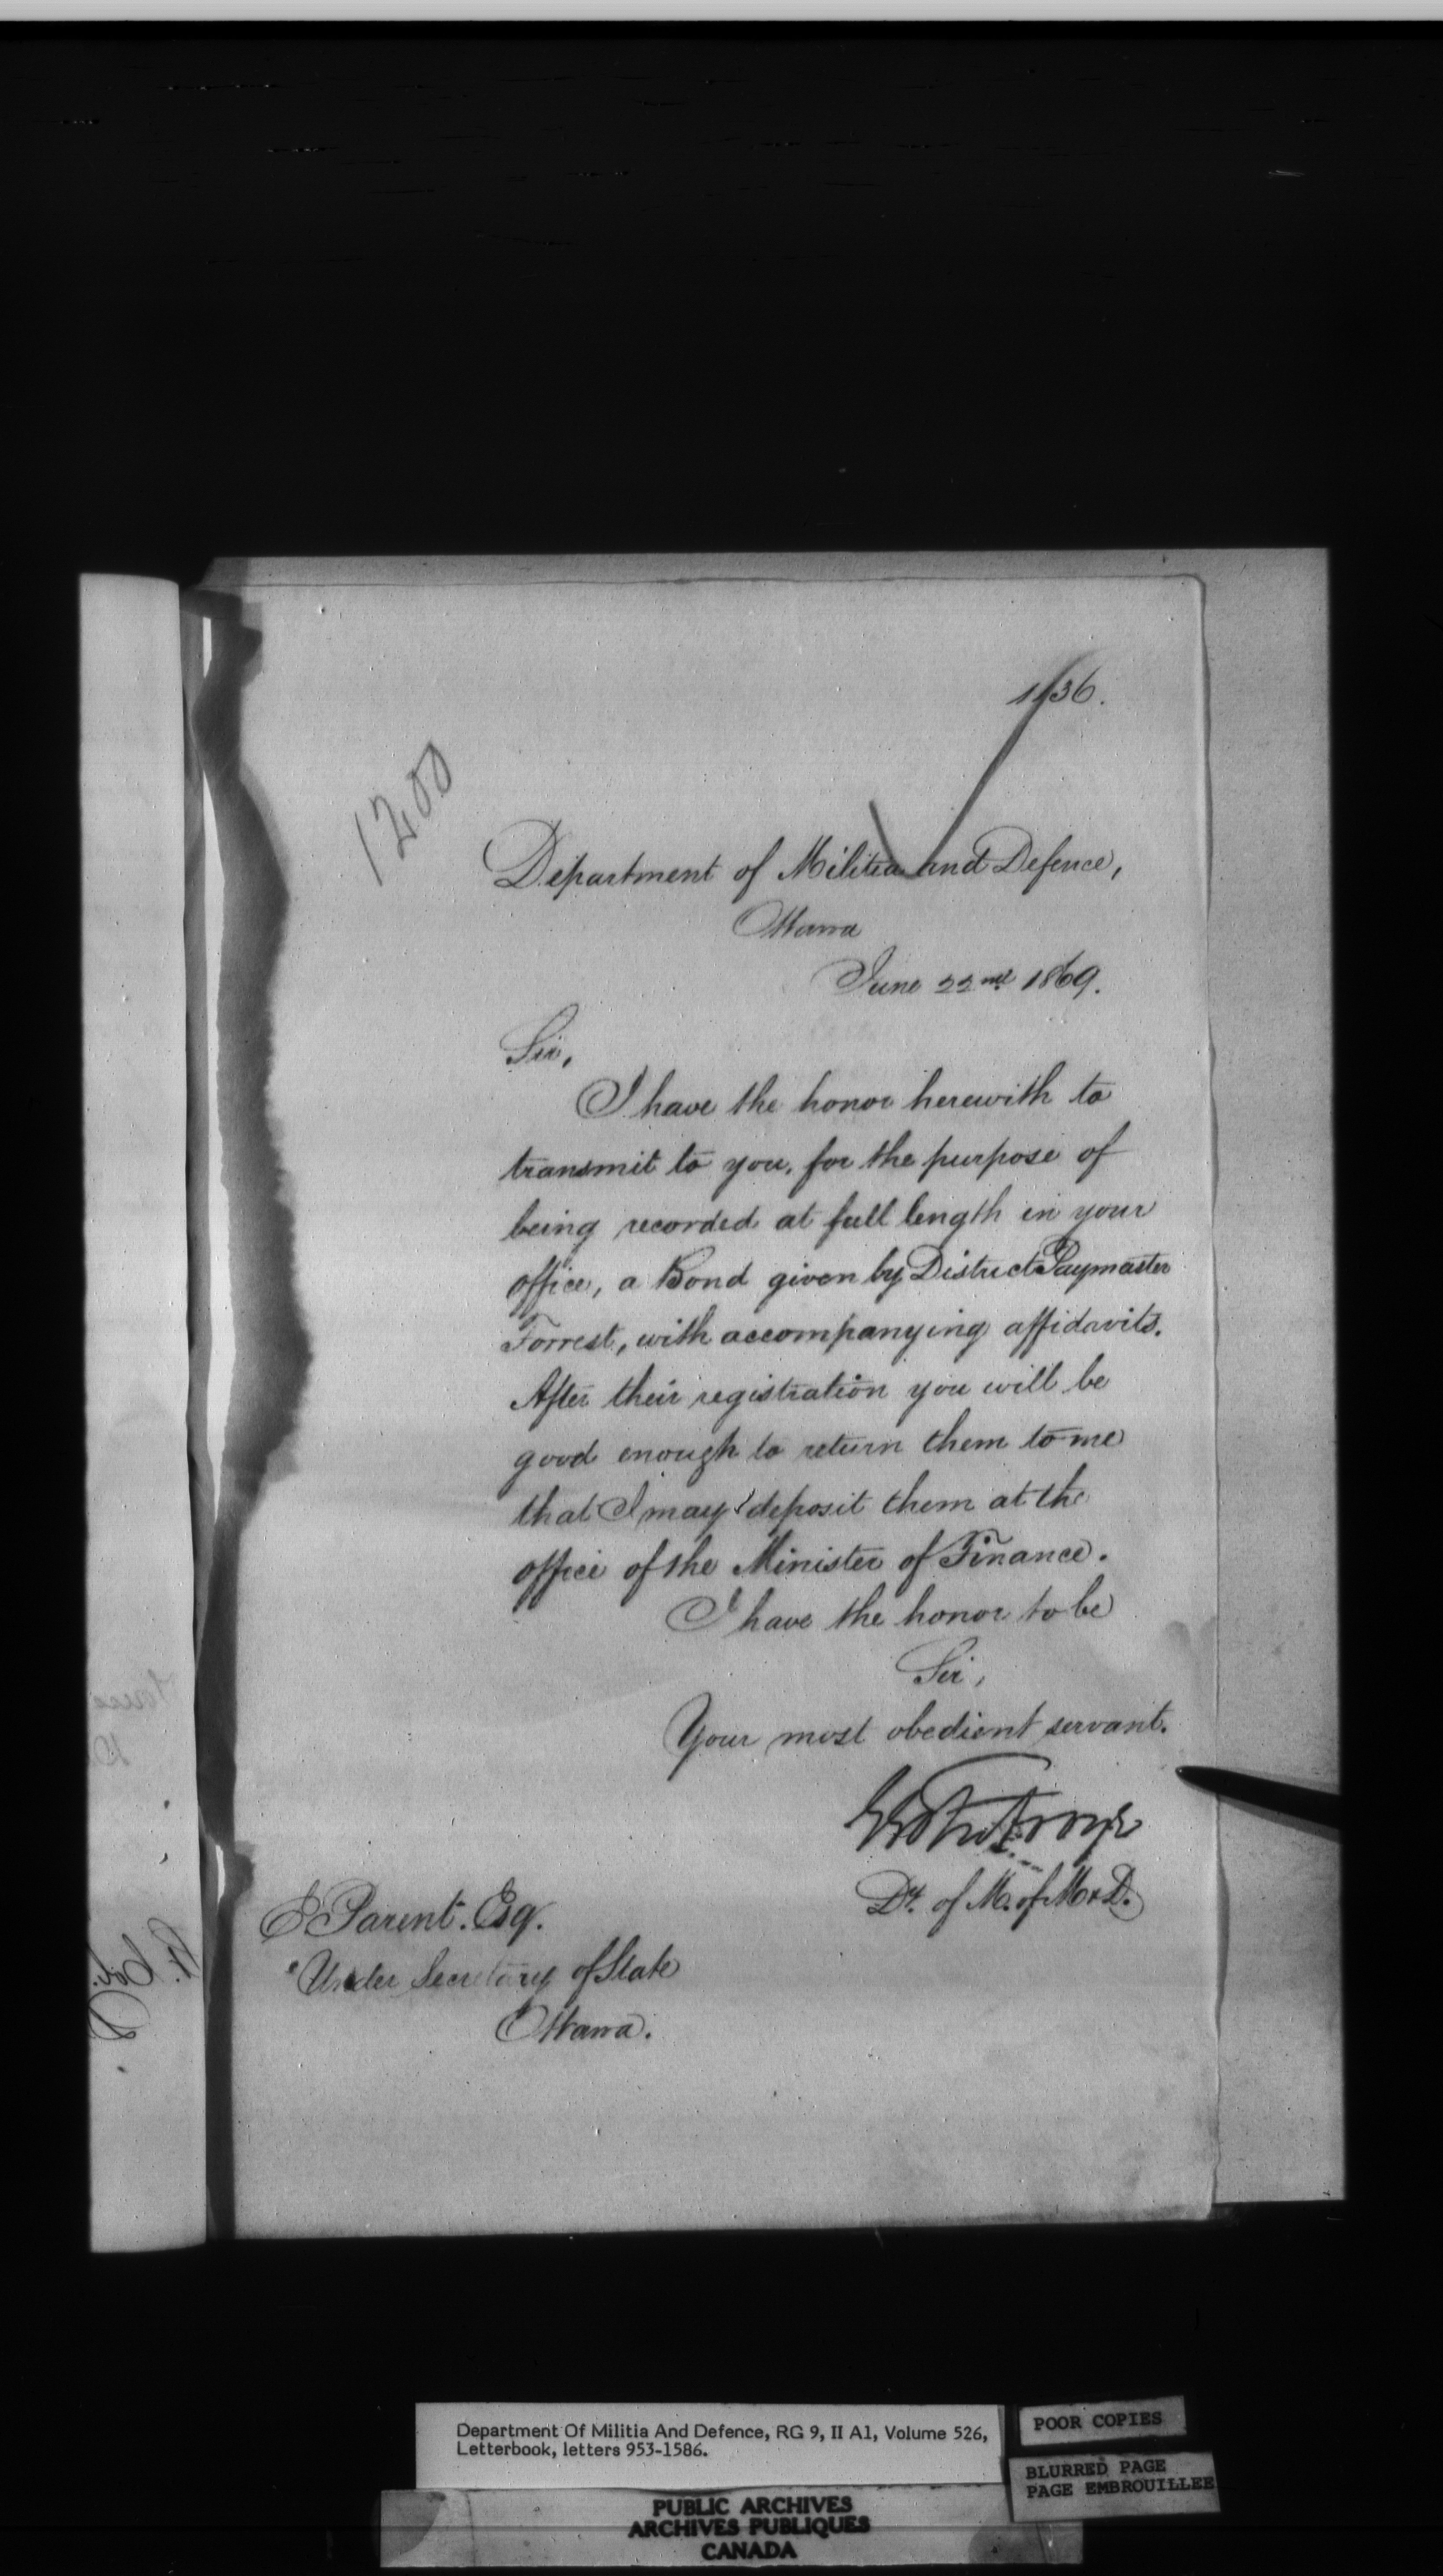 1136.
1200
Department of Militia and Defence,
Ottawa
June 22nd 1869.
Sir,
I have the honor herewith to
transmit to you, for the purpose of
being recorded at full length in your
office, a Bond given by District Paymaster
Forrest, with accompanying affidavits.
After their registration you will be
good enough to return them to me
that I may deposit them at the
office of the Minister of Finance.
I have the honor to be
Sir,
Your most obedient servant.
Dy. of M. of M & D.
E Parent. Esq.
Under Secretary of State
Ottawa.
Department Of Militia And Defence, RG 9, II A1, Volume 526,
Letterbook, letters 953-1586.
POOR COPIES
BLURRED PAGE
PAGE EMBROUILLEE
PUBLIC ARCHIVES
ARCHIVES PUBLIQUES
CANADA